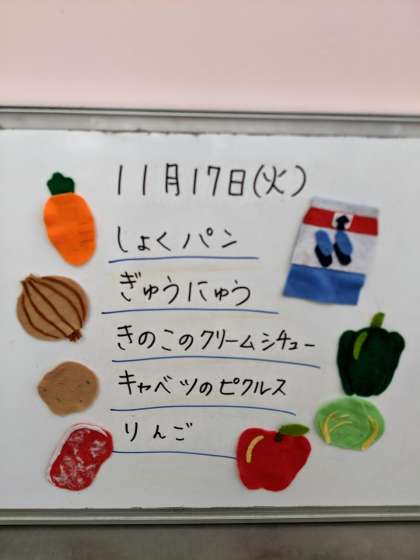 11月17日(火)
しょくパン
ぎゅうにゅう
きのこのクリームシチュー
キャベツのピクルス
りんご